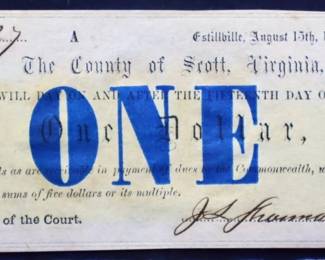 27 A Estillville, August 15th, 1
The County of Scott, Virginia,
WILL PAY ON AND AFTER THE FIFTEENTH DAY OF
ONE
One Dollar,
ds as are receivable in payment of dues to the Commonwealth, w
sums of five dollars or its multiple.
of the Court. J. S.